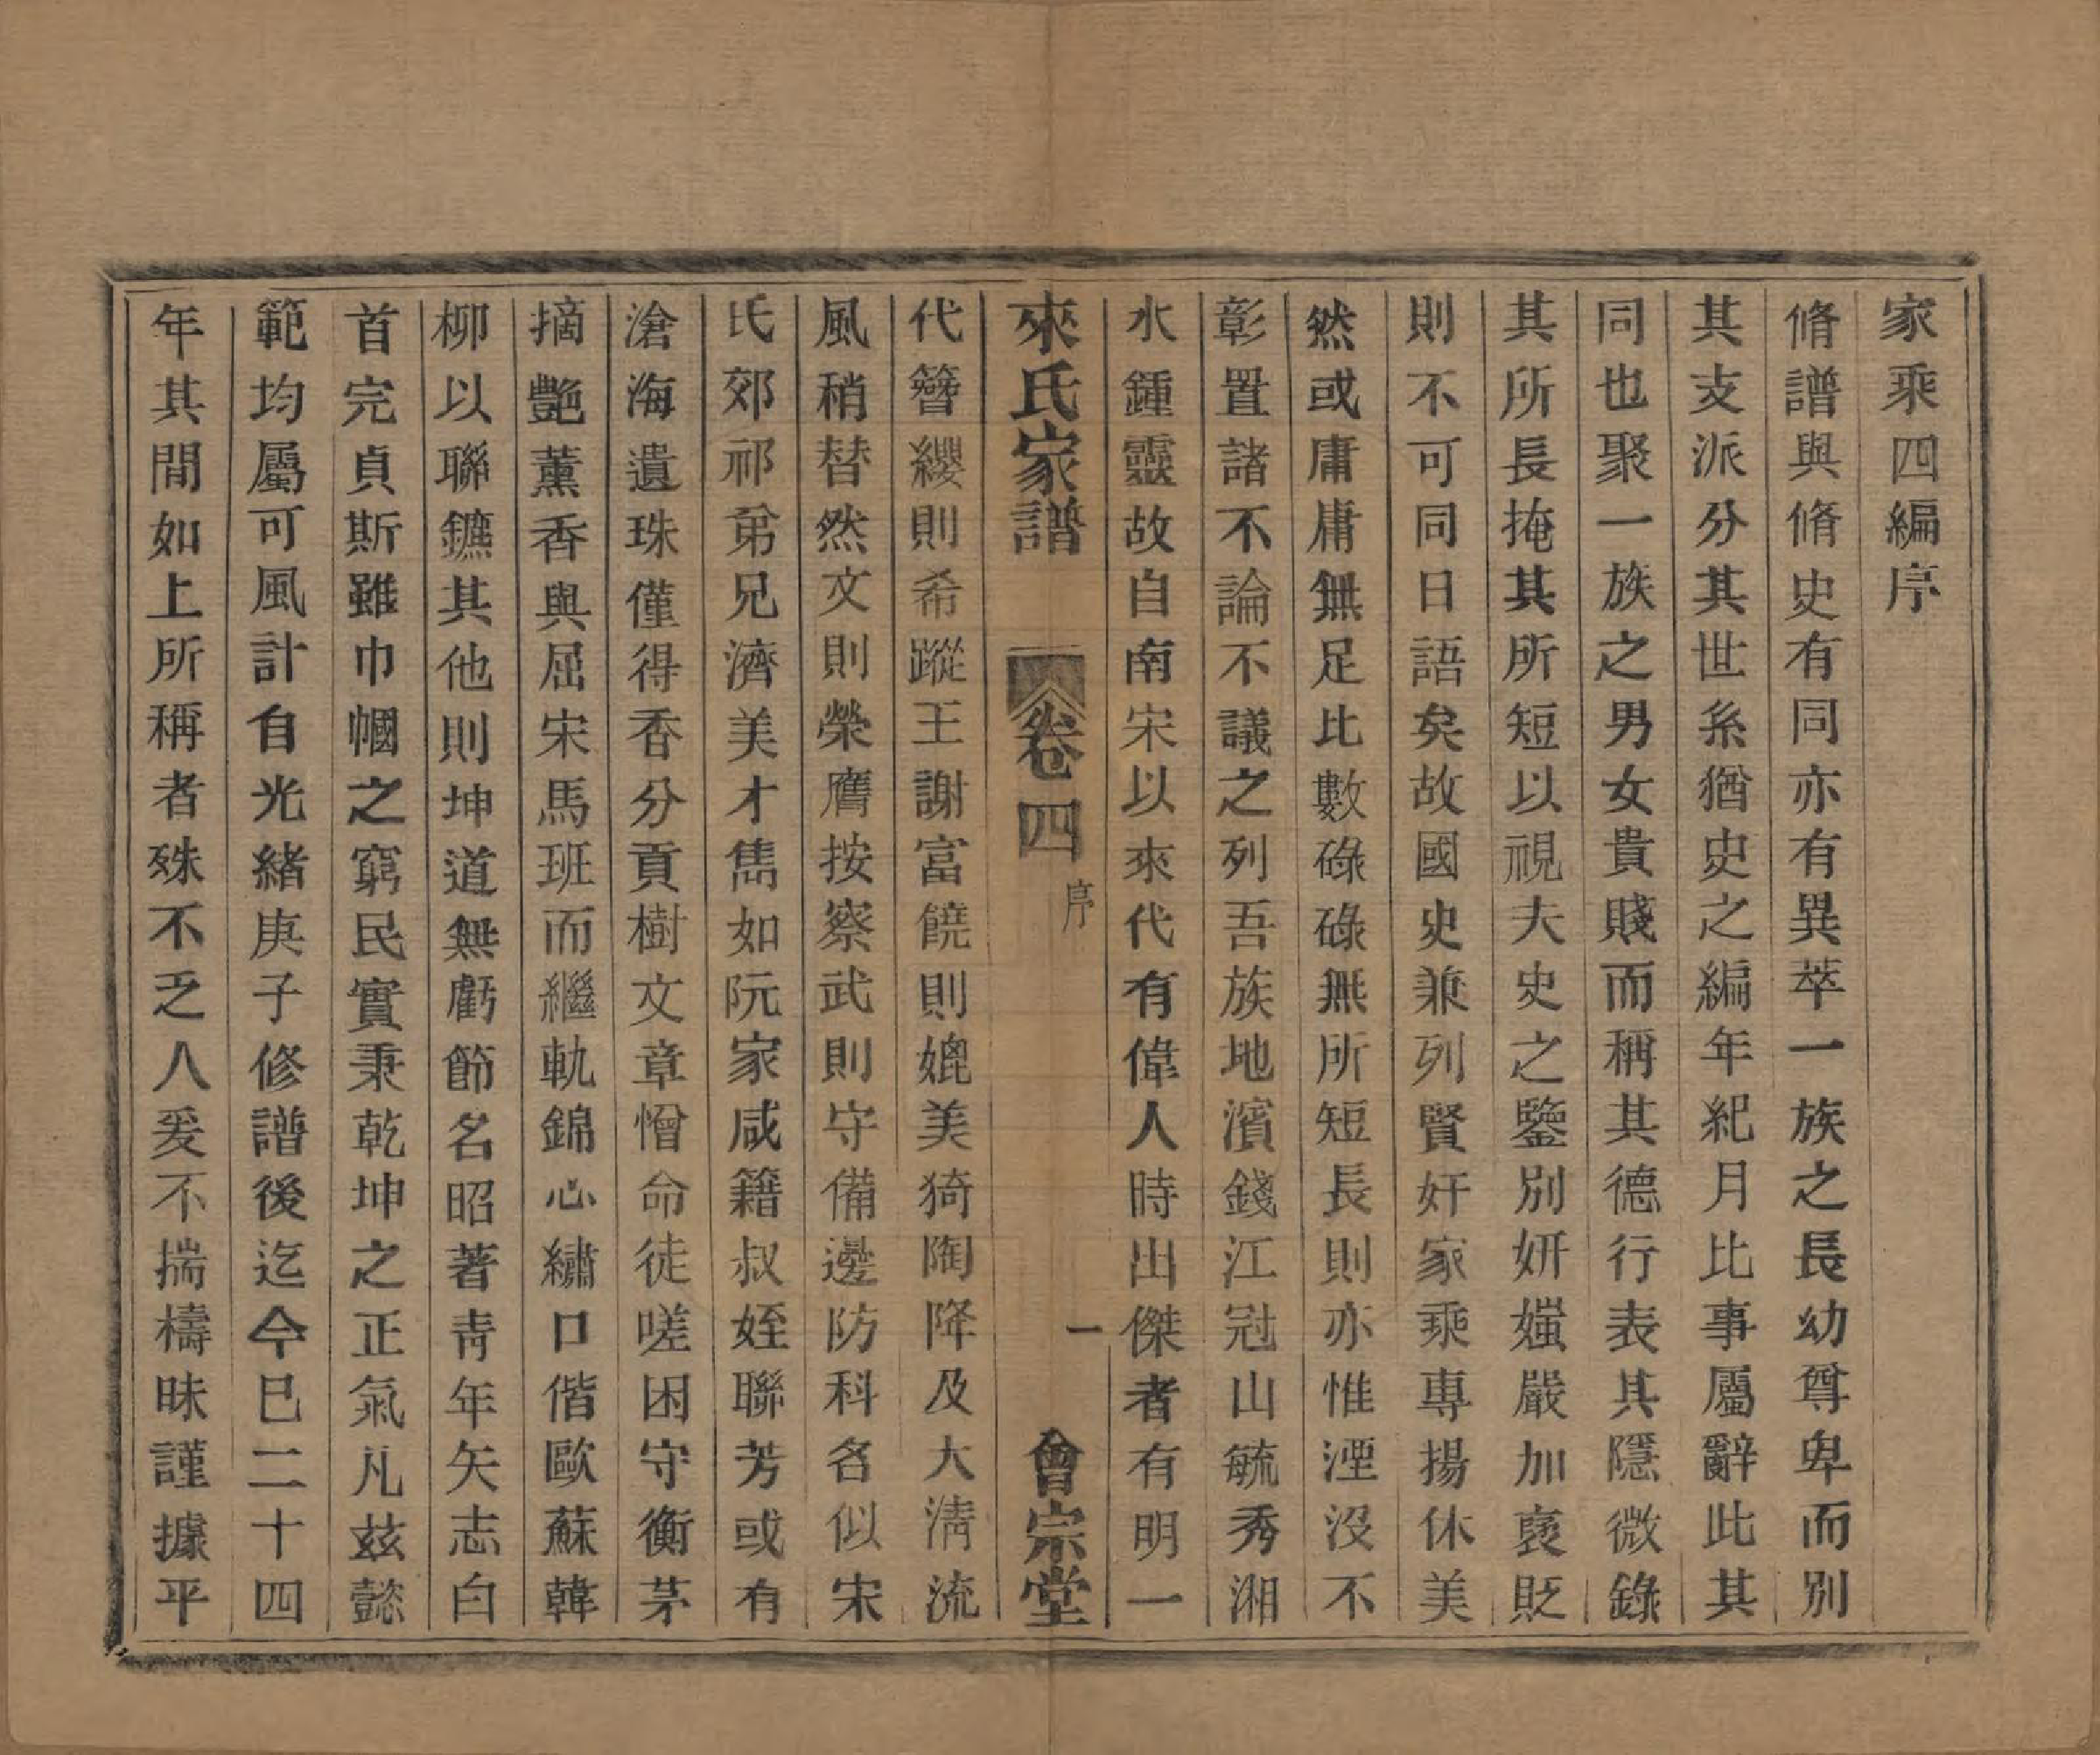 家乘四編序
脩譜與脩史有同亦有異萃一族之長幼尊卑而別
其支派分其世系猶史之編年紀月比事屬辭此其
同也聚一族之男女貴賤而稱其德行表其隱微錄
其所長掩其所短以視夫史之鑒別妍媸嚴加褒貶
則不可同日語矣故國史兼列賢奸家乘專揚休美
然或庸庸無足比數碌碌無所短長則亦惟湮沒不
彰置諸不論不議之列吾族地濱錢江冠山毓秀湘
水鍾靈故自南宋以來代有偉人時出傑者有明一
來氏家譜 卷四 序 一 會宗堂
代簪纓則希蹤王謝富饒則媲美猗陶降及大清流
風稍替然文則榮膺按察武則守備邊防科名似宋
氏郊祁弟兄濟美才雋如阮家咸籍叔姪聯芳或有
滄海遺珠僅得香分貢樹文章憎命徒嗟困守衡茅
摘艷薰香與屈宋馬班而繼軌錦心繡口偕歐蘇韓
柳以聯鑣其他則坤道無虧節名昭著靑年矢志白
首完貞斯雖巾幗之窮民實秉乾坤之正氣凡茲懿
範均屬可風計自光緒庚子修譜後迄今已二十四
年其間如上所稱者殊不乏人爰不揣檮昧謹據平